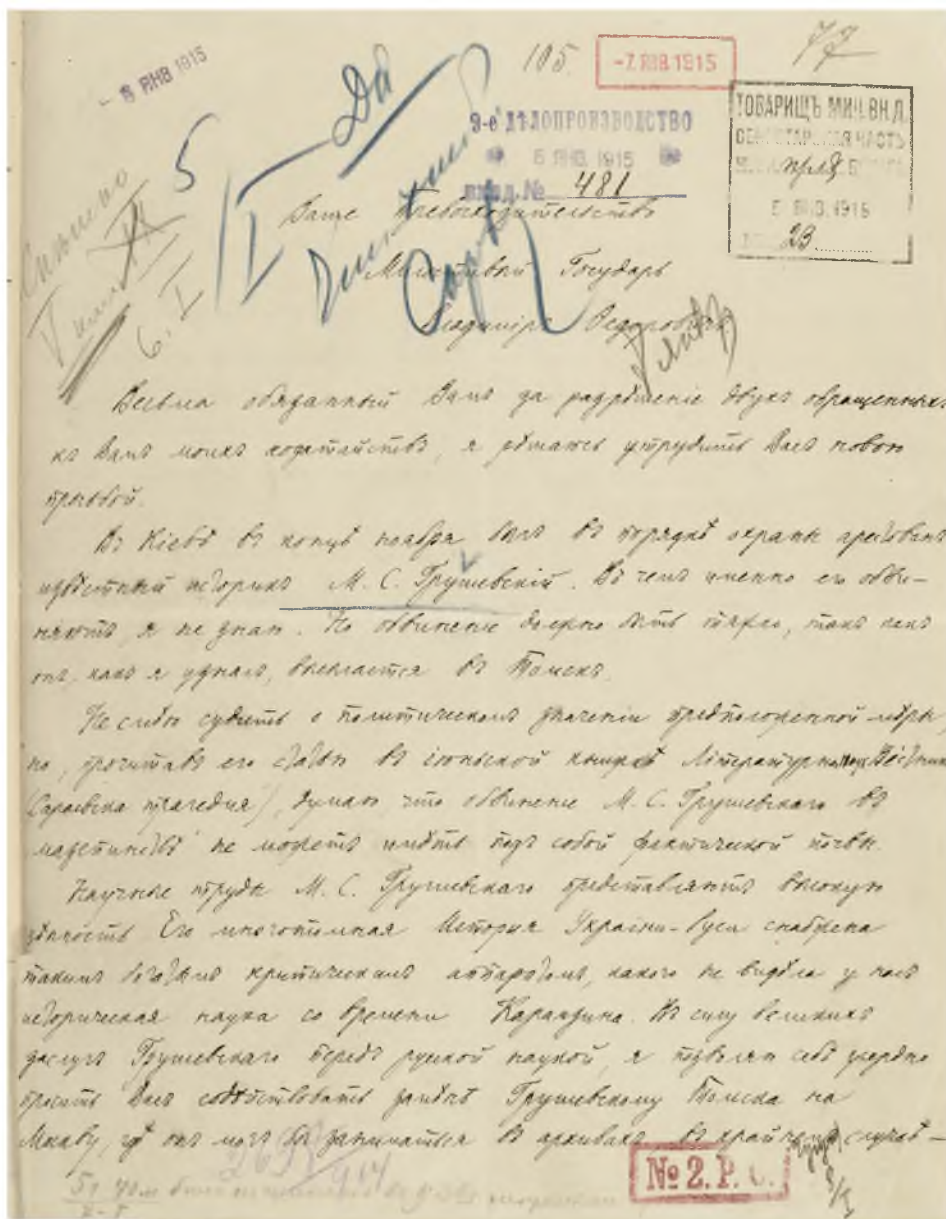 - 5 ЯНВ 1915
105.
-7. ЯНВ. 1915
77
ТОВАРИЩЪ МИН. ВН. Д.
5 ЯНВ. 1915
23
9-е ДѢЛОПРОИЗВОДСТВО
5 ЯНВ. 1915
вход. № 481
5/I
Да
6. I
Ваше Превосходительство
Милостивый Государь
Владиміръ Федоровичъ
Весьма обязанный Вамъ за разрѣшеніе двухъ обращенныхъ
къ Вамъ моихъ ходатайствъ, я рѣшаюсь утрудить Васъ новою
просьбой.
Въ Кіевѣ въ концѣ ноября былъ въ порядкѣ охраны арестованъ
извѣстный историкъ М. С. Грушевскій. Въ чемъ именно его обви-
няютъ, я не знаю. Но обвиненіе должно быть тяжко, такъ какъ
онъ, какъ я узналъ, высылается въ Томскъ.
Не смѣю судить о политическомъ значеніи предположенной мѣры,
но, прочитавъ его статью в іюньской книжкѣ Літературно Вістника
(Сараєвска трагедия), думаю что обвиненіе М. С. Грушевскаго въ
мазепинствѣ не можетъ имѣть подъ собой фактической почвы.
Научные труды М. С. Грушевскаго представляютъ высокую
цѣнность Его многотомная Исторія Украіни-Руси снабжена
такимъ богатымъ критическимъ аппаратомъ, какого не видѣла у насъ
историческая наука со времени Карамзина. Въ силу великихъ
заслугъ Грушевскаго передъ русской наукой, я позволяю себѣ усердно
просить Васъ содѣйствовать замѣнѣ Грушевскому Томска на
Москву, гдѣ онъ могъ бы заниматься въ архивахъ въ крайнемъ случаѣ -
№ 2. Р. С.